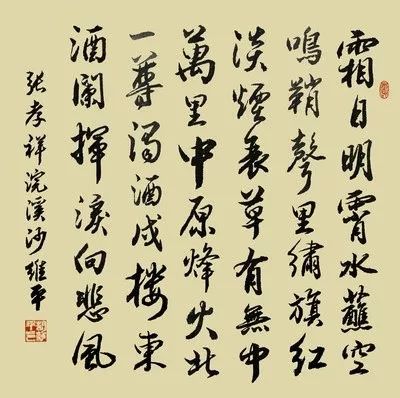 霜日明霄水蘸空
鳴鞘聲里繡旗紅
淡煙衰草有無中
萬里中原烽火北
一尊濁酒戍樓東
酒闌揮淚向悲風
張孝祥浣溪沙維平